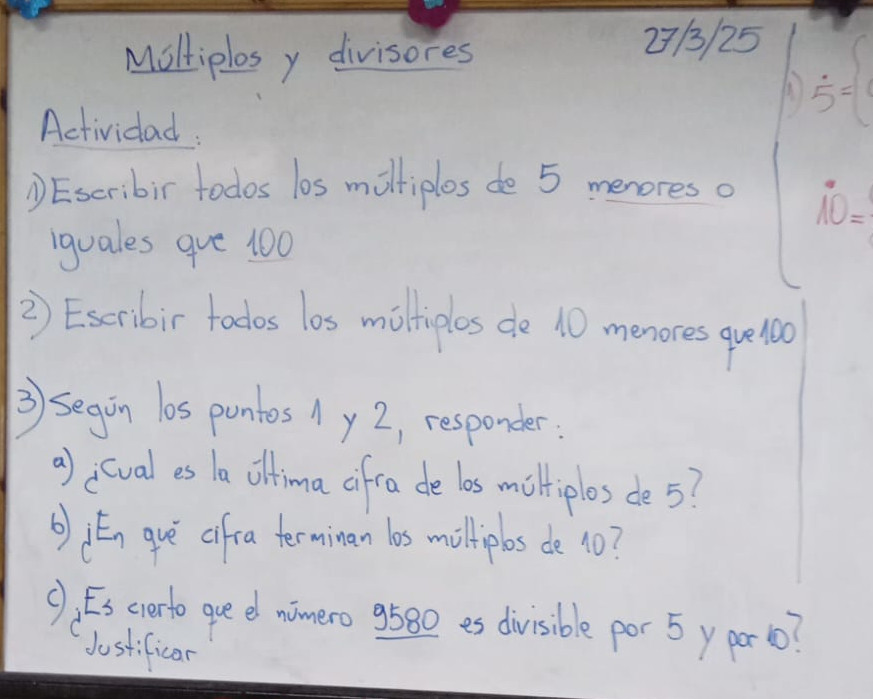 Múltiplos y divisores
27/3/25
Actividad:
1) Escribir todos los múltiplos de 5 menores o
iguales que 100
2) Escribir todos los múltiplos de 10 menores que 100
3) Según los puntos 1 y 2, responder:
a) ¿Cual es la última cifra de los múltiplos de 5?
b) ¿En qué cifra terminan los múltiplos de 10?
c) ¿Es cierto que el número 9580 es divisible por 5 y por 10?
Justificar
1) 5̇ = {
1̇0 = {